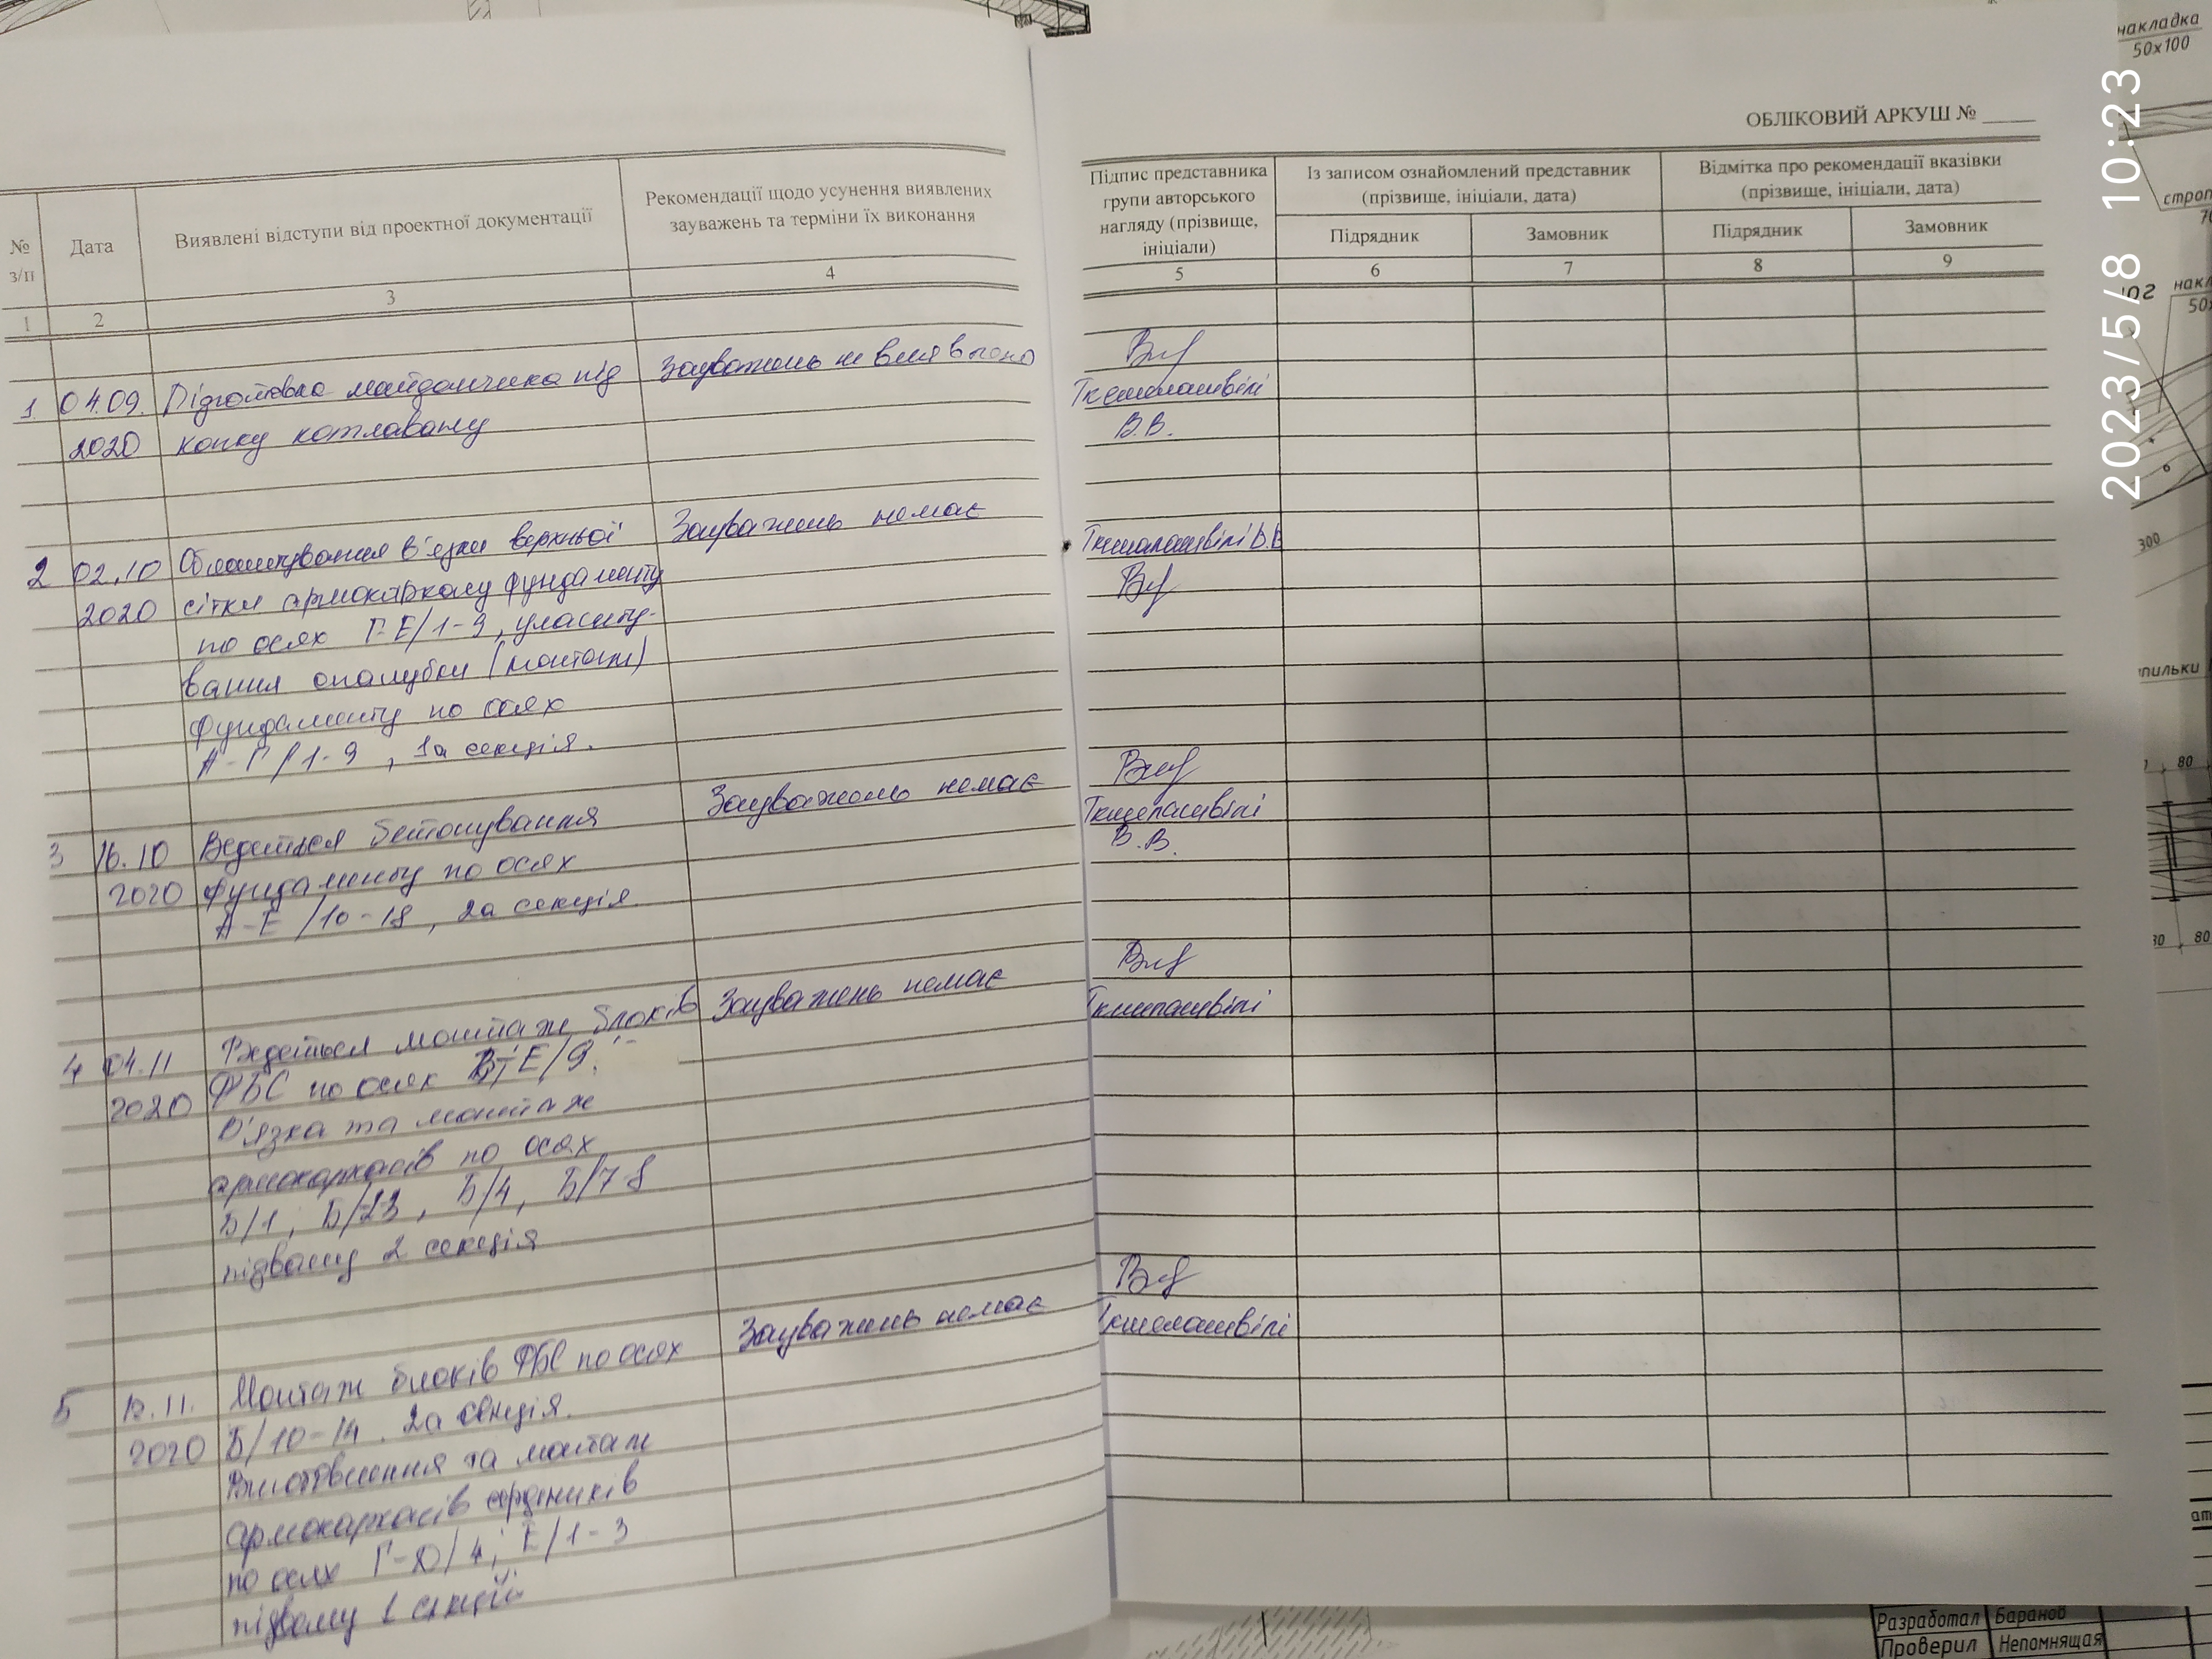 ОБЛІКОВИЙ АРКУШ №
№ з/п
Дата
Виявлені відступи від проектної документації
Рекомендації щодо усунення виявлених
зауважень та терміни їх виконання
1
2
3
4
1 04.09. Підготовка майданчика під
2020 копку котловану
Зауважень не виявлено
2 02.10 Облаштування в'язки верхньої
2020 сітки армокаркасу фундаменту
по осях Г-Е/1-9, улашту-
вання опалубки (монтаж)
фундаменту по осях
А-Г/1-9, 1а секція.
Зауважень немає
3 16.10 Ведеться бетонування
2020 фундаменту по осях
А-Е/10-18, 2а секція.
Зауважень немає
4 04.11 Ведеться монтаж блоків
2020 ФБС по осях Е/9.
В'язка та монтаж
армокаркасів по осях
Б/1, Б/4, Б/7-8
підвалу 2 секція
Зауважень немає
5 12.11. Монтаж блоків ФБС по осях
2020 Б/10-14. 2а секція.
Виготовлення та монтаж
армокаркасів сердечників
по осях Г-Д/4; Е/1-3
підвалу 1 секції
Зауважень немає
Підпис представника
групи авторського
нагляду (прізвище,
ініціали)
Із записом ознайомлений представник
(прізвище, ініціали, дата)
Відмітка про рекомендації вказівки
(прізвище, ініціали, дата)
Підрядник
Замовник
Підрядник
Замовник
5
6
7
8
9
Ткешелашвілі
В.В.
Ткешелашвілі В.В
Ткешелашвілі
В.В.
Ткешелашвілі
Ткешелашвілі
2023/5/8 10:23
накладка
50х100
300
80
80
Разработал Баранов
Проверил Непомнящая